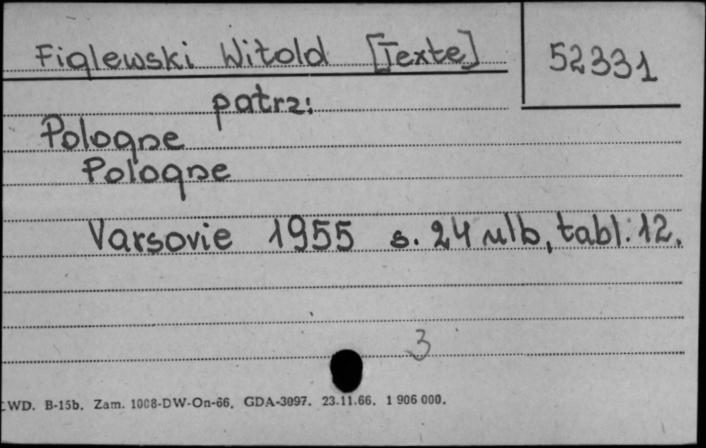 Figlewski Witold [Texte]
52331
patrz:
Pologne
Pologne
Varsovie 1955 s. 24 nlb, tabl. 12.
3
LWD. B-15b. Zam. 1008-DW-On-66. GDA-3097. 23.11.66. 1 906 000.